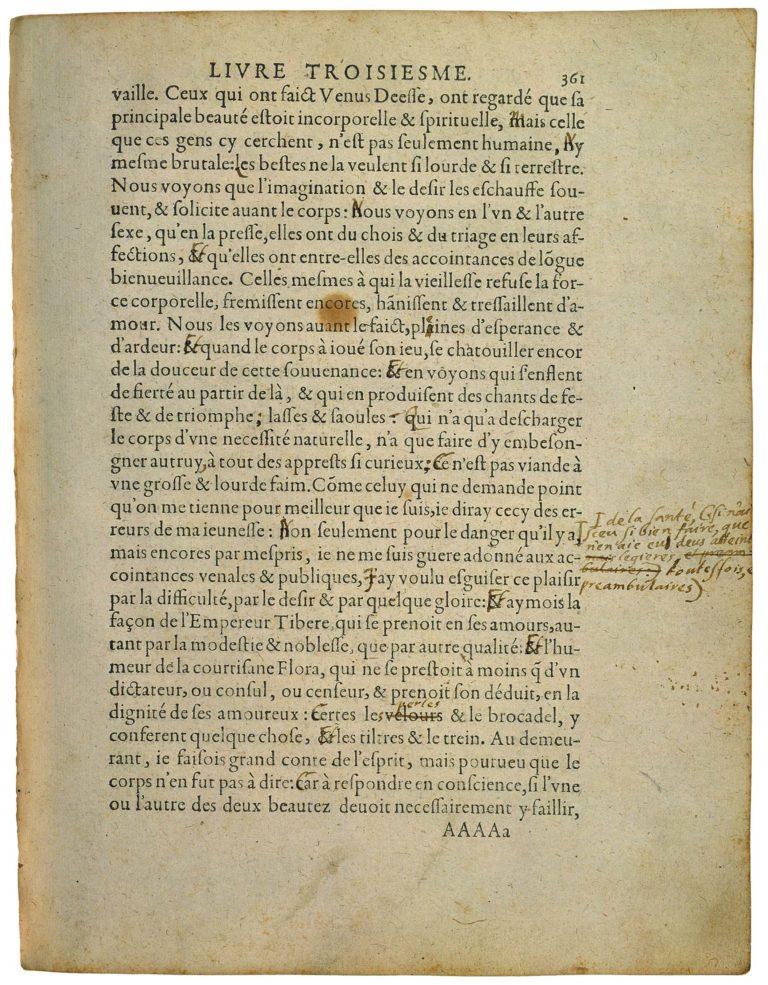 LIVRE TROISIESME. 361
vaille. Ceux qui ont faict Venus Deesse, ont regardé que sa
principale beauté estoit incorporelle & spirituelle, Mais celle
que ces gens cy cerchent, n'est pas seulement humaine, Ny
mesme brutale: les bestes ne la veulent si lourde & si terrestre.
Nous voyons que l'imagination & le desir les eschauffe sou-
uent, & solicite auant le corps: Nous voyons en l'vn & l'autre
sexe, qu'en la presse, elles ont du chois & du triage en leurs af-
fections, Et qu'elles ont entre-elles des accointances de lõgue
bienueuillance. Celles mesmes à qui la vieillesse refuse la for-
ce corporelle, fremissent encores, hãnissent & tressaillent d'a-
mour. Nous les voyons auant le faict, pleines d'esperance &
d'ardeur: Et quand le corps à ioué son ieu, se chatouiller encor
de la douceur de cette souuenance: Et en voyons qui s'enflent
de fierté au partir de là, & qui en produisent des chants de fe-
ste & de triomphe; lasses & saoules: qui n'a qu'a descharger
le corps d'vne necessité naturelle, n'a que faire d'y embeson-
gner autruy, à tout des apprests si curieux: Ce n'est pas viande à
vne grosse & lourde faim. Cõme celuy qui ne demande point
qu'on me tienne pour meilleur que ie suis, ie diray cecy des er-
reurs de ma ieunesse: Non seulement pour le danger qu'il y a
mais encores par mespris, ie ne me suis guere adonné aux ac-
cointances venales & publiques, J'ay voulu esguiser ce plaisir
par la difficulté, par le desir & par quelque gloire: Et aymois la
façon de l'Empereur Tibere, qui se prenoit en ses amours, au-
tant par la modestie & noblesse, que par autre qualité: Et l'hu-
meur de la courtisane Flora, qui ne se prestoit à moins q̃ d'vn
dictateur, ou consul, ou censeur, & prenoit son déduit, en la
dignité de ses amoureux: Certes les velours perles & le brocadel, y
conferent quelque chose, Et les tiltres & le trein. Au demeu-
rant, ie faisois grand conte de l'esprit, mais pourueu que le
corps n'en fut pas à dire: Car à respondre en conscience, si l'vne
ou l'autre des deux beautez deuoit necessairement y faillir,
AAAAa
de la santé, (& si n'ai
sceu si bien faire, que
n'en aïe eu deus atteint
legieres
toutesfois, e
preambulaires)